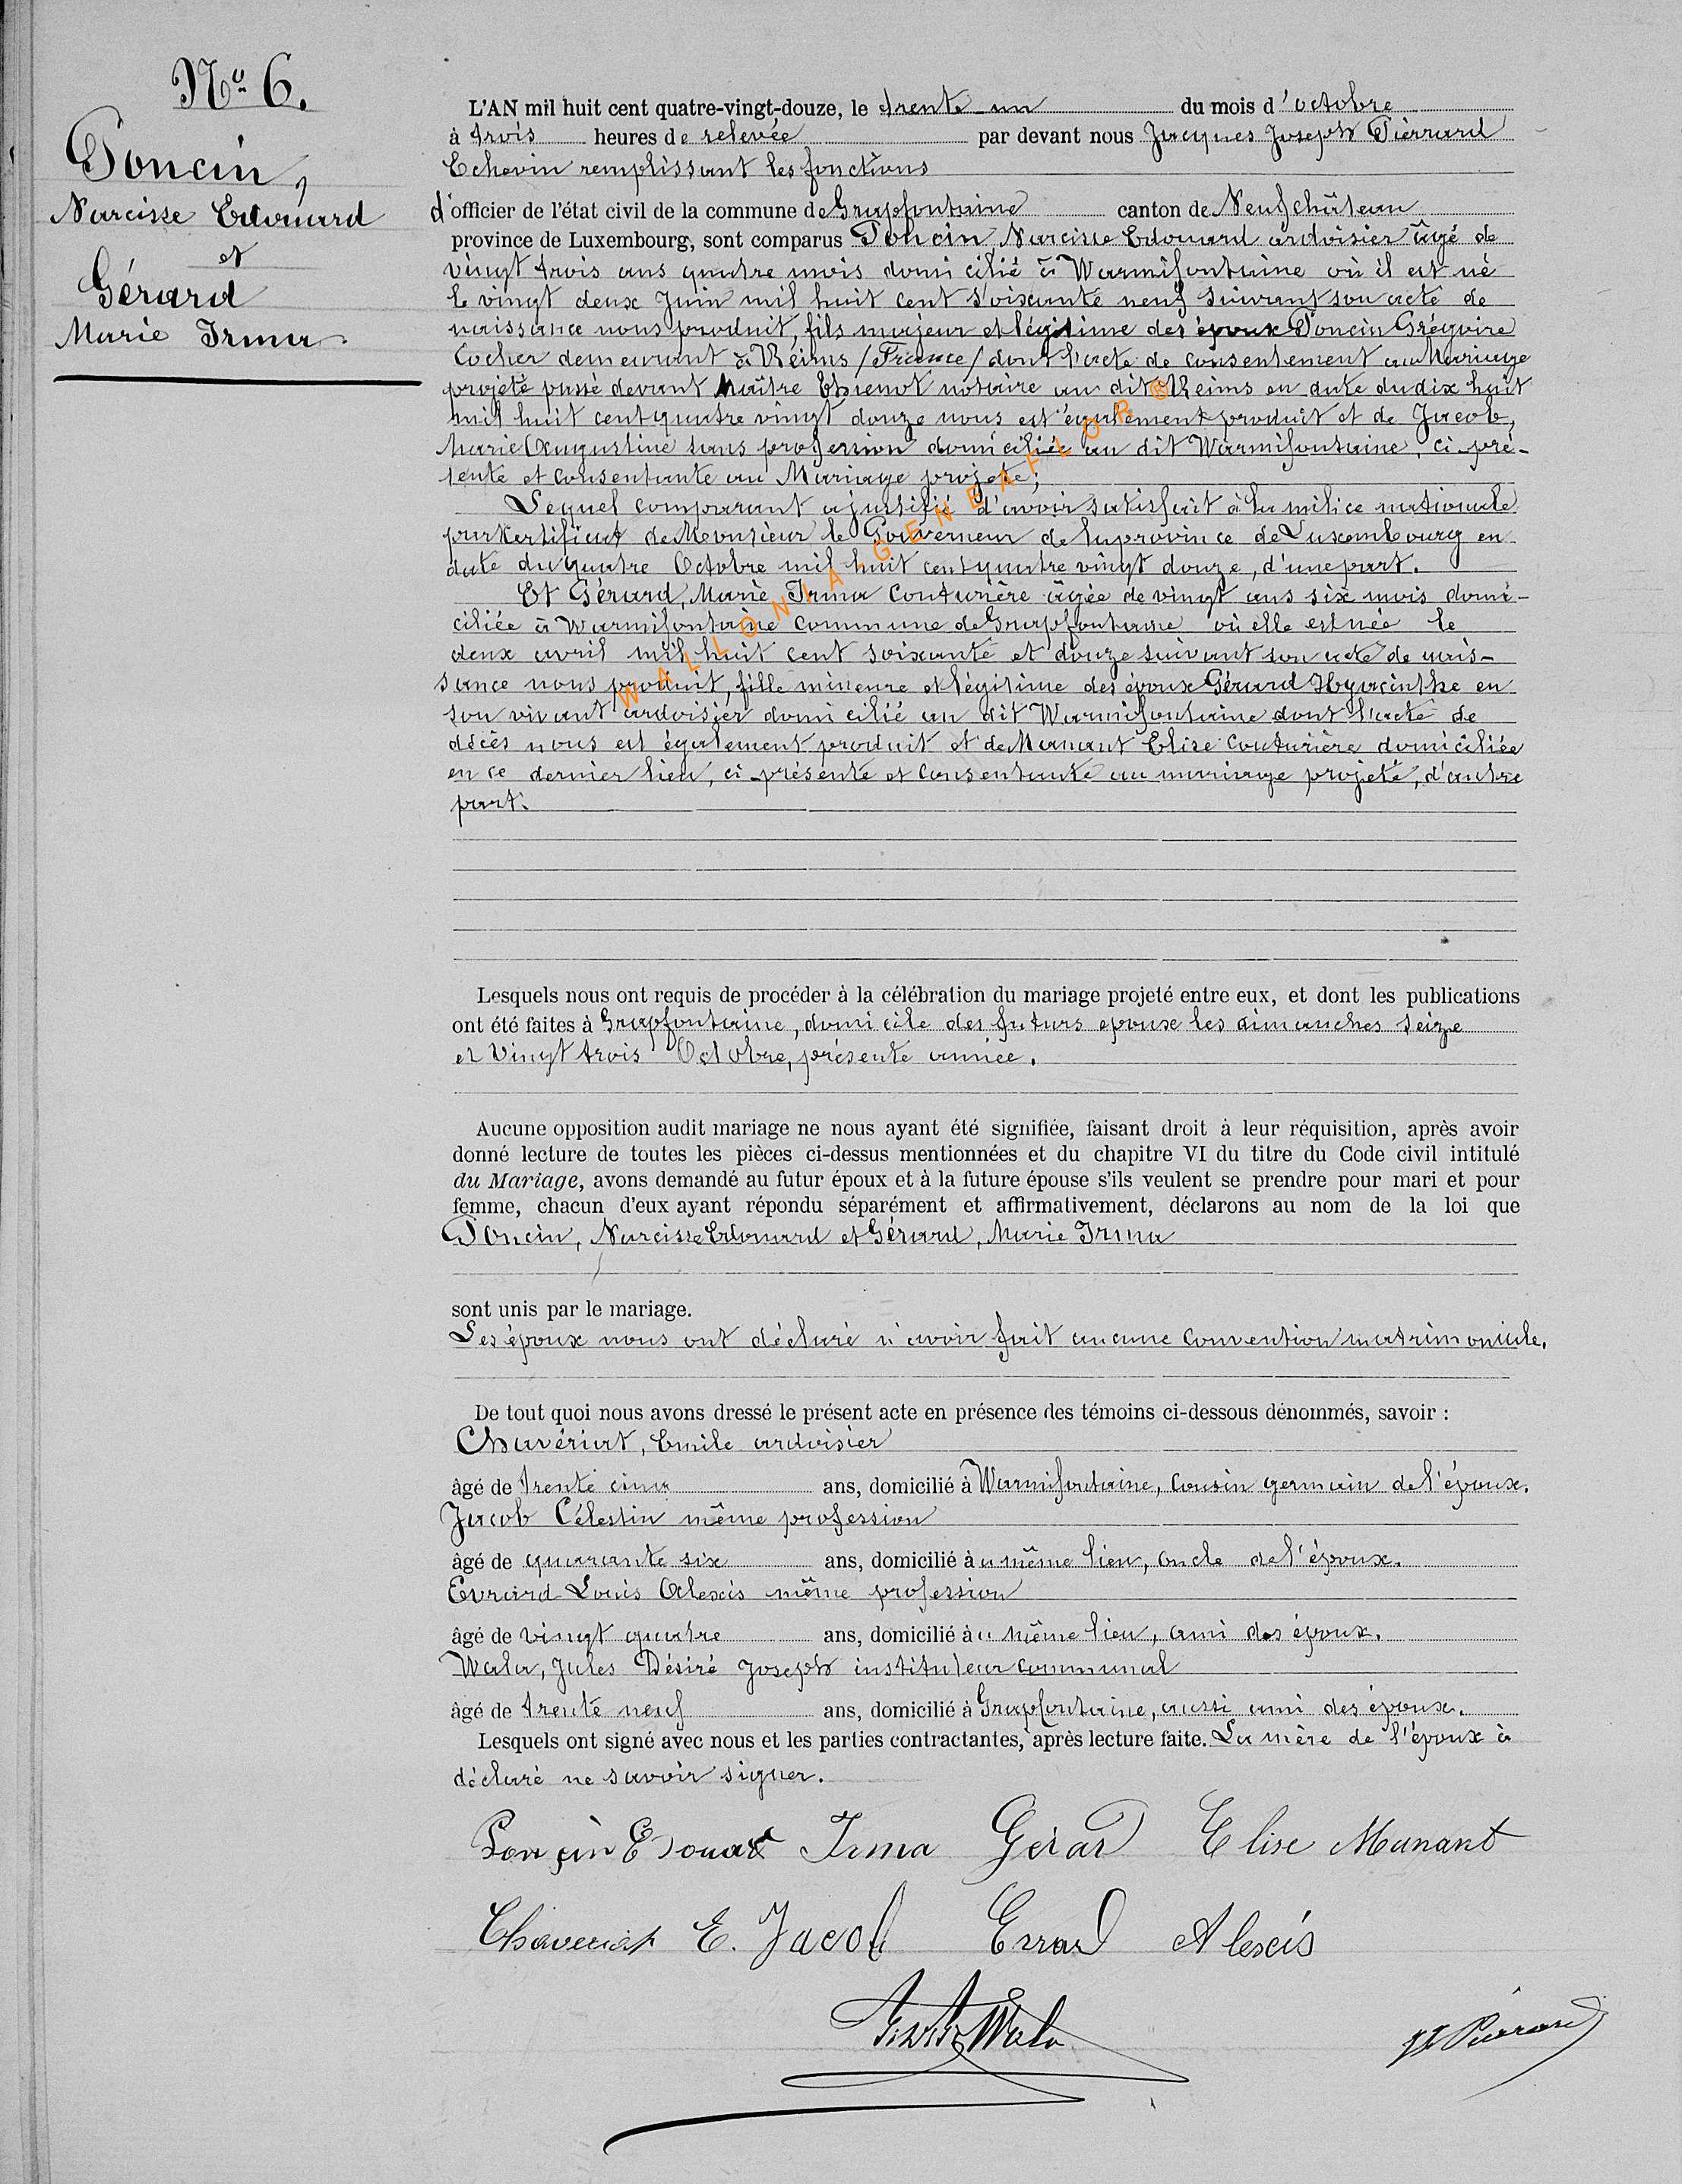 No 6.
Poncin,
Narcisse Edouard
et
Gérard
Marie Irma
L'AN mil huit cent quatre-vingt-douze, le trente un du mois d'octobre
à trois heures de relevée par devant nous Jacques Joseph Pierrard
Echevin remplissant les fonctions
d'officier de l'état civil de la commune de Grapfontaine canton de Neufchâteau
province de Luxembourg, sont comparus Poncin, Narcisse Edouard ardoisier âgé de
vingt trois ans quatre mois domicilié à Warmifontaine où il est né
le vingt deux Juin mil huit cent soixante neuf suivant son acte de
naissance nous produit, fils majeur et légitime des époux Poncin Grégoire
Cocher demeurant à Reims /France/ dont l'acte de consentement au Mariage
projeté passé devant Maître Thienot notaire au dit Reims en date du dix huit
mil huit cent quatre vingt douze nous est également produit et de Jacob,
Marie Augustine sans profession domiciliée au dit Warmifontaine, ci-pré-
sente et consentante au Mariage projeté;
Lequel comparant a justifié d'avoir satisfait à la milice nationale
par certificat de Monsieur le Gouverneur de la province de Luxembourg en
date du quatre Octobre mil huit cent quatre vingt douze, d'une part.
Et Gérard, Marie Irma Couturière âgée de vingt ans six mois domi-
ciliée à Warmifontaine commune de Grapfontaine où elle est née le
deux avril mil huit cent soixante et douze suivant son acte de nais-
sance nous produit, fille mineure et légitime des époux Gérard Hyacinthe en
son vivant ardoisier domicilié au dit Warmifontaine dont l'acte de
décès nous est également produit et de Manant Elise Couturière domiciliée
en ce dernier lieu, ci-présente et consentante au mariage projeté, d'autre
part.
WALLONIA-GENEAFLOR®
Lesquels nous ont requis de procéder à la célébration du mariage projeté entre eux, et dont les publications
ont été faites à Grapfontaine, domicile des futurs epoux les dimanches seize
et Vingt trois Octobre, présente année.
Aucune opposition audit mariage ne nous ayant été signifiée, faisant droit à leur réquisition, après avoir
donné lecture de toutes les pièces ci-dessus mentionnées et du chapitre VI du titre du Code civil intitulé
du Mariage, avons demandé au futur époux et à la future épouse s'ils veulent se prendre pour mari et pour
femme, chacun d'eux ayant répondu séparément et affirmativement, déclarons au nom de la loi que
Poncin, Narcisse Edouard et Gérard, Marie Irma
sont unis par le mariage.
Les époux nous ont déclaré n'avoir fait aucune convention matrimoniale.
De tout quoi nous avons dressé le présent acte en présence des témoins ci-dessous dénommés, savoir :
Chavériat, Emile ardoisier
âgé de trente cinq ans, domicilié à Warmifontaine, Cousin germain de l'époux.
Jacob Célestin même profession
âgé de quarante six ans, domicilié au même lieu, oncle de l'époux.
Evrard Louis Alexis même profession
âgé de vingt quatre ans, domicilié au même lieu, ami des époux.
Wala, Jules Désiré Joseph instituteur communal
âgé de trente neuf ans, domicilié à Grapfontaine, aussi ami des époux.
Lesquels ont signé avec nous et les parties contractantes, après lecture faite. La mère de l'époux à
déclaré ne savoir signer.
Ponçin Edouar Irma Gérard Elise Manant
Chaveriat E. Jacob Evrard Alexis
Wala JJ Pierrard